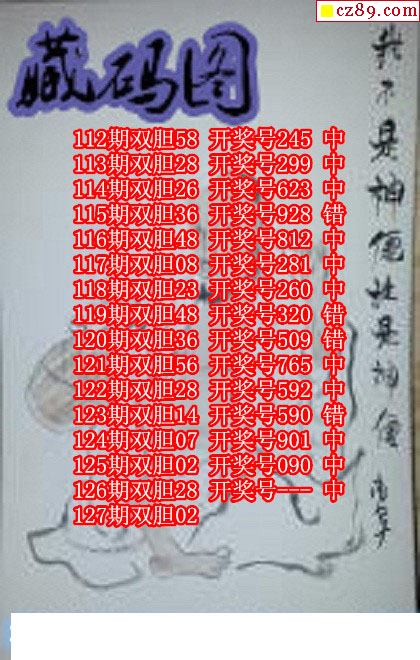 cz89.com
藏码图
112期双胆58 开奖号245 中
113期双胆28 开奖号299 中
114期双胆26 开奖号623 中
115期双胆36 开奖号928 错
116期双胆48 开奖号812 中
117期双胆08 开奖号281 中
118期双胆23 开奖号260 中
119期双胆48 开奖号320 错
120期双胆36 开奖号509 错
121期双胆56 开奖号765 中
122期双胆28 开奖号592 中
123期双胆14 开奖号590 错
124期双胆07 开奖号901 中
125期双胆02 开奖号090 中
126期双胆28 开奖号--- 中
127期双胆02
我不是神仙胜是神仙